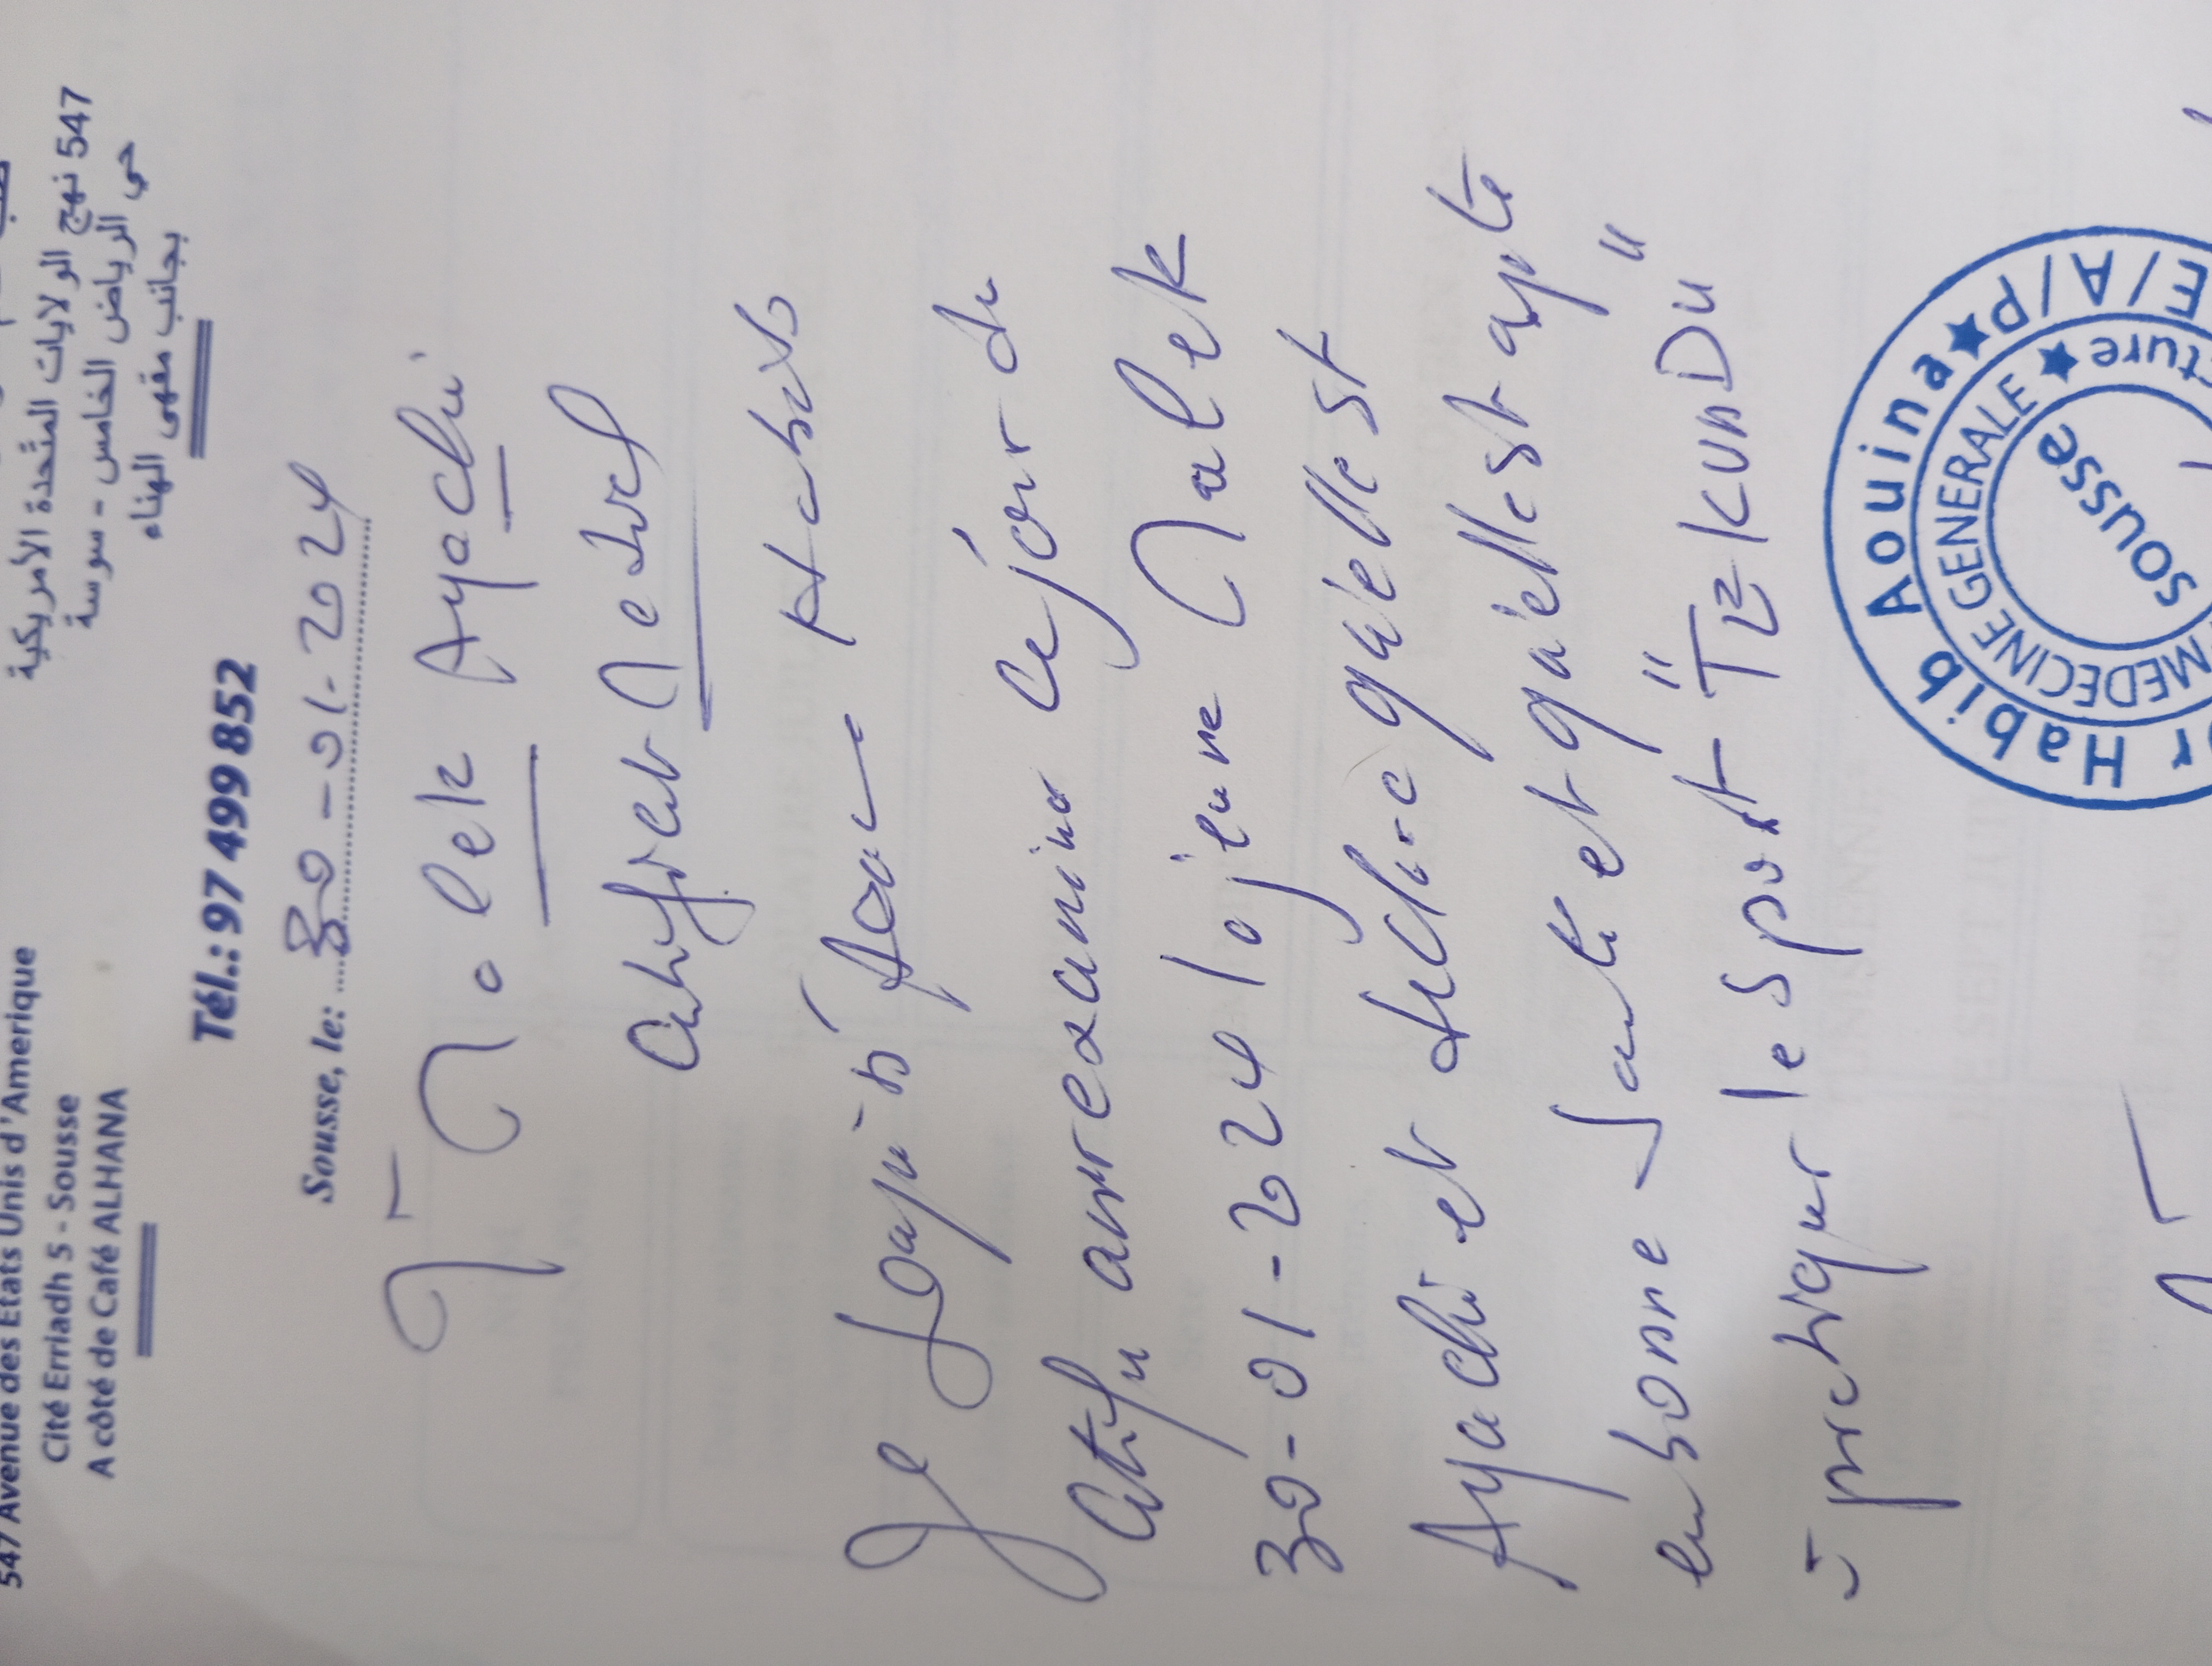 547 Avenue des Etats Unis d'Amerique
Cité Erriadh 5 - Sousse
A côté de Café ALHANA
547 نهج الولايات المتحدة الأمريكية
حي الرياض الخامس - سوسة
بجانب مقهى الهناء
Tél.: 97 499 852
Sousse, le: 30-01-2024
Malek Ayachi
Certificat Medical
Je
certifie avoir examiné ce jour du
30-01-2024 la jeune Malek
Ayachi et déclare qu'elle est
en bonne santé et qu'elle est apte
à pratiquer le sport "TEKUNDU"
Dr Habib Aouina ★ P/A/E
MEDECINE GENERALE ★
Sousse